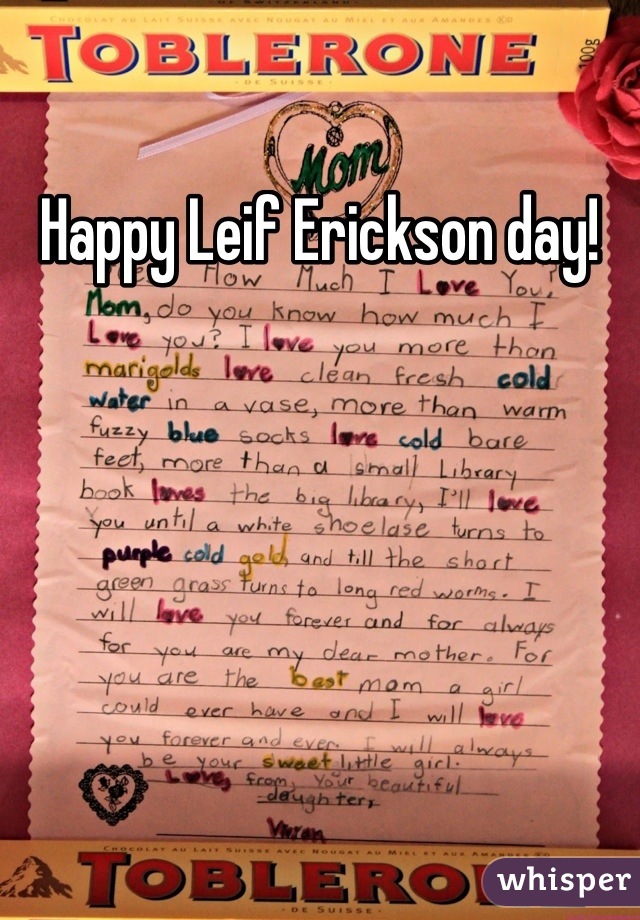 CHOCOLAT AU LAIT SUISSE AVEC NOUGAT AU MIEL ET AUX AMANDES
TOBLERONE
100g
· DE SUISSE ·
Mom
Happy Leif Erickson day!
How Much I Love You?
Mom, do you know how much I
Love you? I love you more than
marigolds love clean fresh cold
water in a vase, more than warm
fuzzy blue socks love cold bare
feet, more than a small Library
book loves the big library, I'll love
you until a white shoelase turns to
purple cold gold, and till the short
green grass turns to long red worms. I
will love you forever and for always
for you are my dear mother. For
you are the best mom a girl
could ever have and I will love
you forever and ever. I will always
be your sweet little girl.
Love, from, your beautiful
daughter,
CHOCOLAT AU LAIT SUISSE AVEC NOUGAT AU MIEL ET AUX AMANDES
TOBLERO
· DE SUISSE ·
whisper